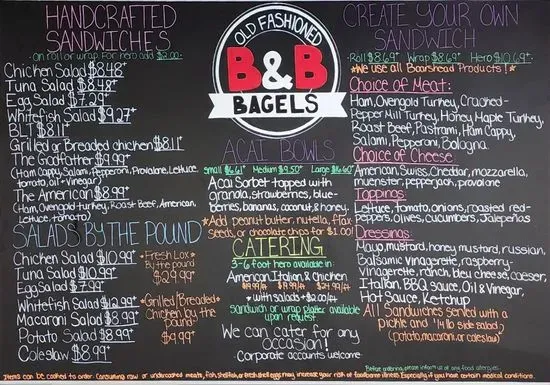 HANDCRAFTED
SANDWICHES
-on roll or wrap for hero add $2.00-
Chicken Salad $8.48*
Tuna Salad $8.48*
Egg Salad $7.29*
Whitefish Salad $9.27*
BLT $8.11*
Grilled or Breaded chicken $8.11*
The Godfather $9.99*
(Ham Cappy, Salami, Pepperoni, Provalone, Lettuce,
tomato, oil + vinegar)
The American $8.99*
(Ham, Ovengold Turkey, Roast Beef, American,
lettuce, tomato)
SALADS BY THE POUND
Chicken Salad $10.99*
Tuna Salad $10.99*
Egg Salad $7.99*
Whitefish Salad $12.99*
Macaroni Salad $8.99*
Potato Salad $8.99*
Coleslaw $8.99*
*Fresh Lox*
By the pound
$29.99*
*Grilled/Breaded*
Chicken by the
pound-
$9.99*
OLD FASHIONED
B&B
BAGELS
ACAI BOWLS
Small $6.61* Medium $9.50* Large $16.60*
Acai Sorbet topped with
granola, strawberries, blue-
berries, bananas, coconut, & honey.
*Add peanut butter, nutella, flax
seeds, or chocolate chips for $1.00!
CATERING
3-6 foot hero available in:
American, Italian, & Chicken
$19.99/ft $19.99/ft $24.99/ft
*with salads +$2.00/ft
sandwich or wrap platter available
upon request
We can cater for any
occasion!
Corporate accounts welcome
CREATE YOUR OWN
SANDWICH
-Roll $8.69* Wrap $8.69* Hero $10.69*-
*We use all Boarshead Products!*
Choice of Meat:
Ham, Ovengold Turkey, Cracked-
Pepper Mill Turkey, Honey Maple Turkey,
Roast Beef, Pastrami, Ham Cappy,
Salami, Pepperoni, Bologna
Choice of Cheese
American, Swiss, Cheddar, mozzarella,
muenster, pepperjack, provalone
Toppings
Lettuce, tomato, onions, roasted red-
peppers, olives, cucumbers, Jalepeños
Dressings
Mayo, mustard, honey mustard, russian,
Balsamic vinegarette, raspberry-
vinegarette, ranch, bleu cheese, caeser,
Italian, BBQ sauce, Oil & Vinegar,
Hot Sauce, Ketchup
All Sandwiches Served with a
pickle and "1/4 lb side salad"
(potato, macaroni, or coleslaw)
Before ordering, please inform us of any food allergies.
Items can be cooked to order. Consuming raw or undercooked meats, fish, shellfish, or fresh shell eggs may increase your risk of foodborne illness. Especially if you have certain medical conditions.